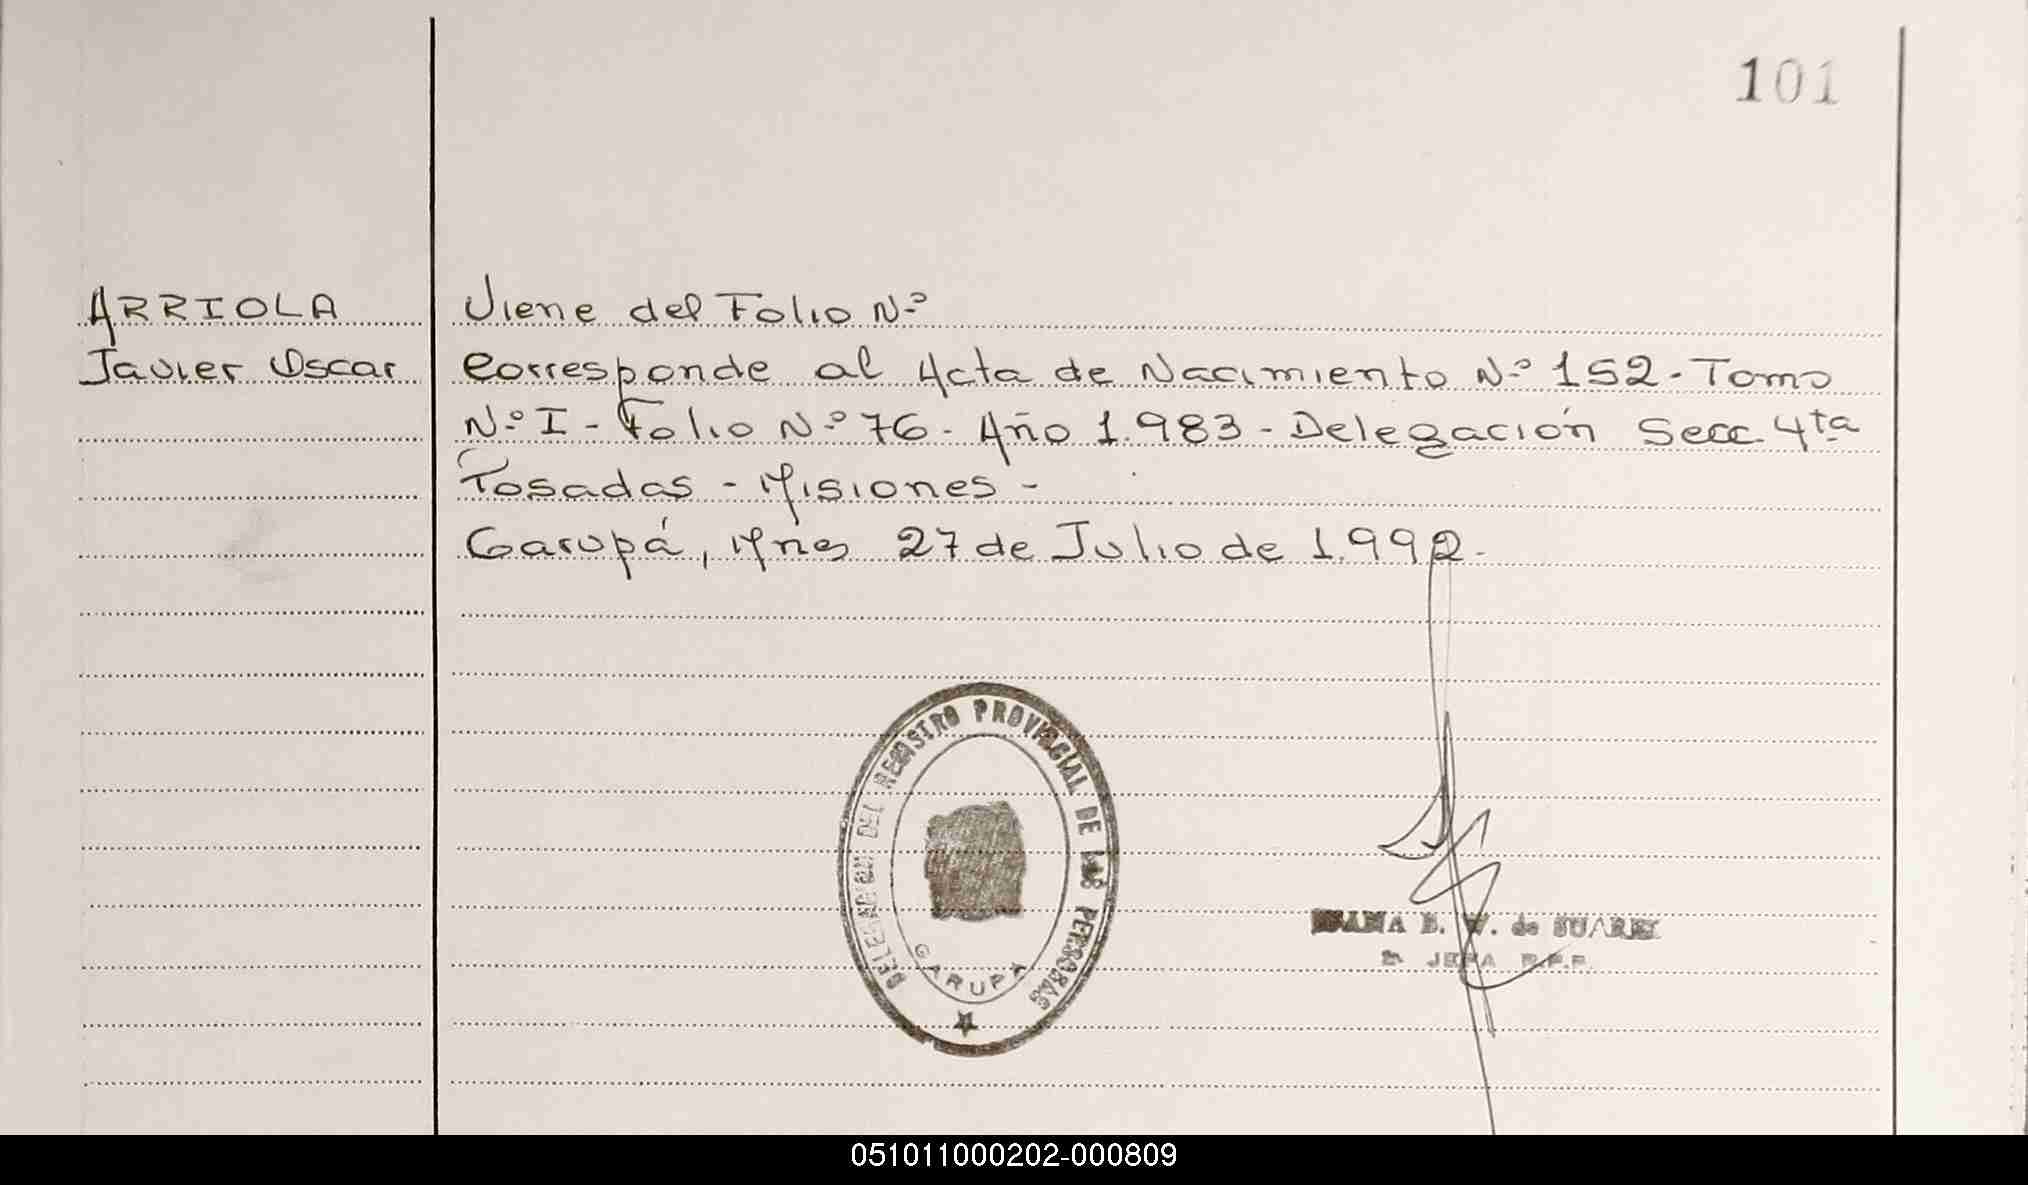 101
ARRIOLA
Javier Oscar
Viene del Folio N.º
Corresponde al Acta de Nacimiento N.º 152.- Tomo
N.º I - Folio N.º 76.- Año 1.983 - Delegación Secc. 4ta
Posadas - Misiones -
Garupá, Mnes 27 de Julio de 1.992.-
DELEGACION DEL REGISTRO PROVINCIAL DE LAS PERSONAS
GARUPA
B. W. de SUAREZ
JEFA R.P.P.
051011000202-000809